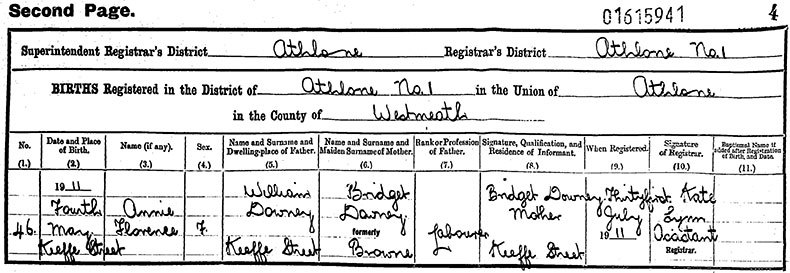 Second Page. 01615941 4
Superintendent Registrar's District Athlone Registrar's District Athlone No. 1
BIRTHS Registered in the District of Athlone No. 1 in the Union of Athlone
in the County of Westmeath
No. Date and Place of Birth. Name (if any). Sex. Name and Surname and Dwelling-place of Father. Name and Surname and Maiden Surname of Mother. Rank or Profession of Father. Signature, Qualification, and Residence of Informant. When Registered. Signature of Registrar. Baptismal Name if added after Registration of Birth, and Date.
(1.) (2.) (3.) (4.) (5.) (6.) (7.) (8.) (9.) (10.) (11.)
1911 William Bridget Bridget Downey Thirtyfirst Kate
Fourth Annie Downey Downey Mother July Lynn
46. May Florence F. formerly Labourer 1911 Assistant
Keeffe Street Keeffe Street Browne Keeffe Street Registrar.